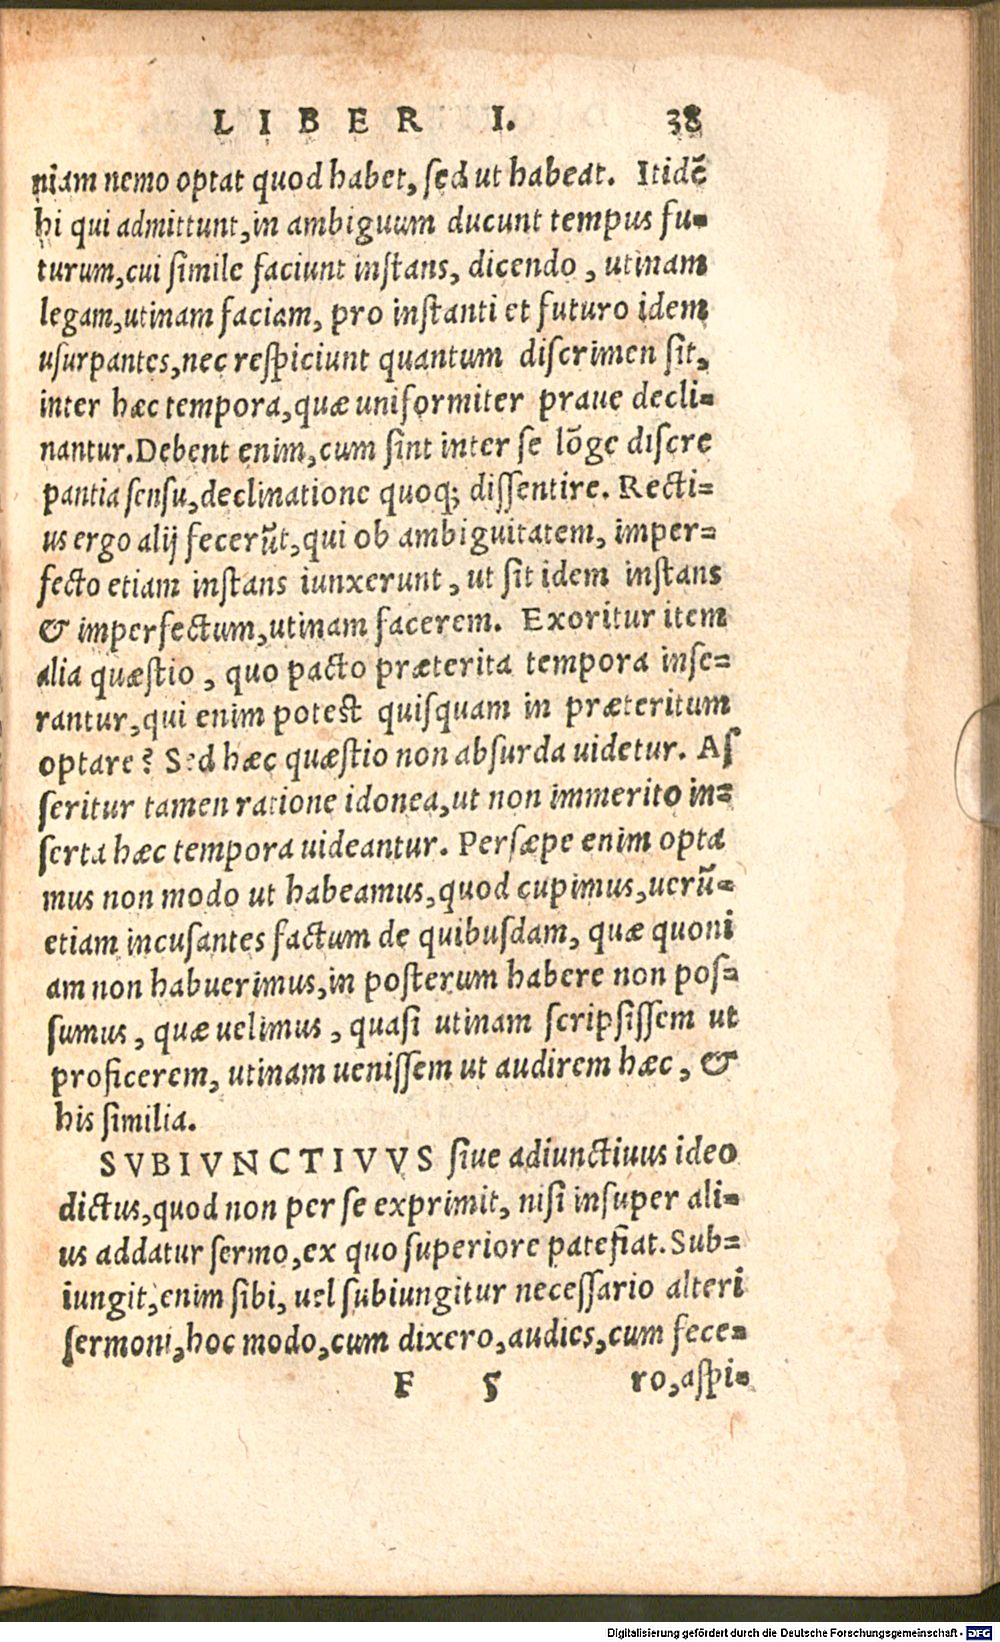 LIBER I. 38
niam nemo optat quod habet, sed ut habeat. Itidē
hi qui admittunt, in ambiguum ducunt tempus fu-
turum, cui simile faciunt instans, dicendo, utinam
legam, utinam faciam, pro instanti et futuro idem
usurpantes, nec respiciunt quantum discrimen sit,
inter hæc tempora, quæ uniformiter praue decli-
nantur. Debent enim, cum sint inter se lōge discre
pantia sensu, declinatione quoq; dissentire. Recti-
us ergo alij fecerūt, qui ob ambiguitatem, imper-
fecto etiam instans iunxerunt, ut sit idem instans
& imperfectum, utinam facerem. Exoritur item
alia quæstio, quo pacto præterita tempora inse-
rantur, qui enim potest quisquam in præteritum
optare? Sed hæc quæstio non absurda uidetur. As
seritur tamen ratione idonea, ut non immerito in-
serta hæc tempora uideantur. Persæpe enim opta
mus non modo ut habeamus, quod cupimus, uerū-
etiam incusantes factum de quibusdam, quæ quoni
am non habuerimus, in posterum habere non pos-
sumus, quæ uelimus, quasi utinam scripsissem ut
proficerem, utinam uenissem ut audirem hæc, &
his similia.
SVBIVNCTIVVS siue adiunctiuus ideo
dictus, quod non per se exprimit, nisi insuper ali-
us addatur sermo, ex quo superiore patefiat. Sub-
iungit, enim sibi, uel subiungitur necessario alteri
sermoni, hoc modo, cum dixero, audies, cum fece-
F 5 ro, aspi-
Digitalisierung gefördert durch die Deutsche Forschungsgemeinschaft - DFG